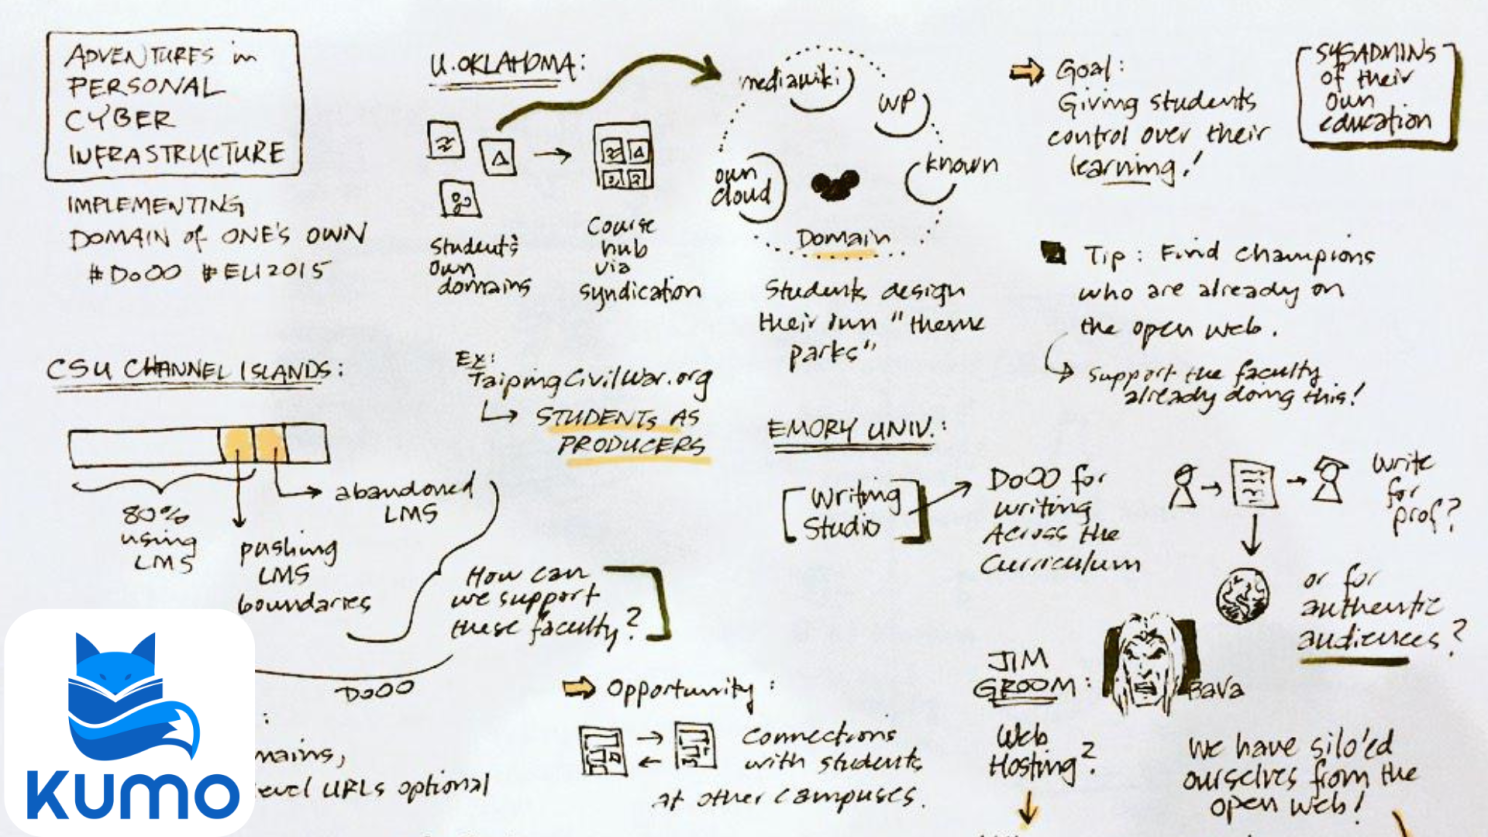 ADVENTURES in
PERSONAL
CYBER
INFRASTRUCTURE
IMPLEMENTING
DOMAIN of ONE'S OWN
#DoOO #ELI2015
U. OKLAHOMA:
Student's
own
domains
Course
hub
via
syndication
mediawiki
WP
known
own
cloud
Domain
Students design
their own "theme
parks"
Goal:
Giving students
control over their
learning!
SYSADMINS
of their
own
education
Tip: Find champions
who are already on
the open web.
Support the faculty
already doing this!
CSU CHANNEL ISLANDS:
80%
using
LMS
pushing
LMS
boundaries
abandoned
LMS
Ex:
TaipingCivilWar.org
STUDENTS AS
PRODUCERS
How can
we support
these faculty?
DoOO
:
mains,
evel URLs optional
Opportunity:
Connections
with students
at other campuses.
EMORY UNIV.:
Writing
Studio
DoOO for
writing
Across the
Curriculum
write
for
prof?
or for
authentic
audiences?
JIM
GROOM:
Bava
Web
Hosting?
We have silo'ed
ourselves from the
open web!
KUMO